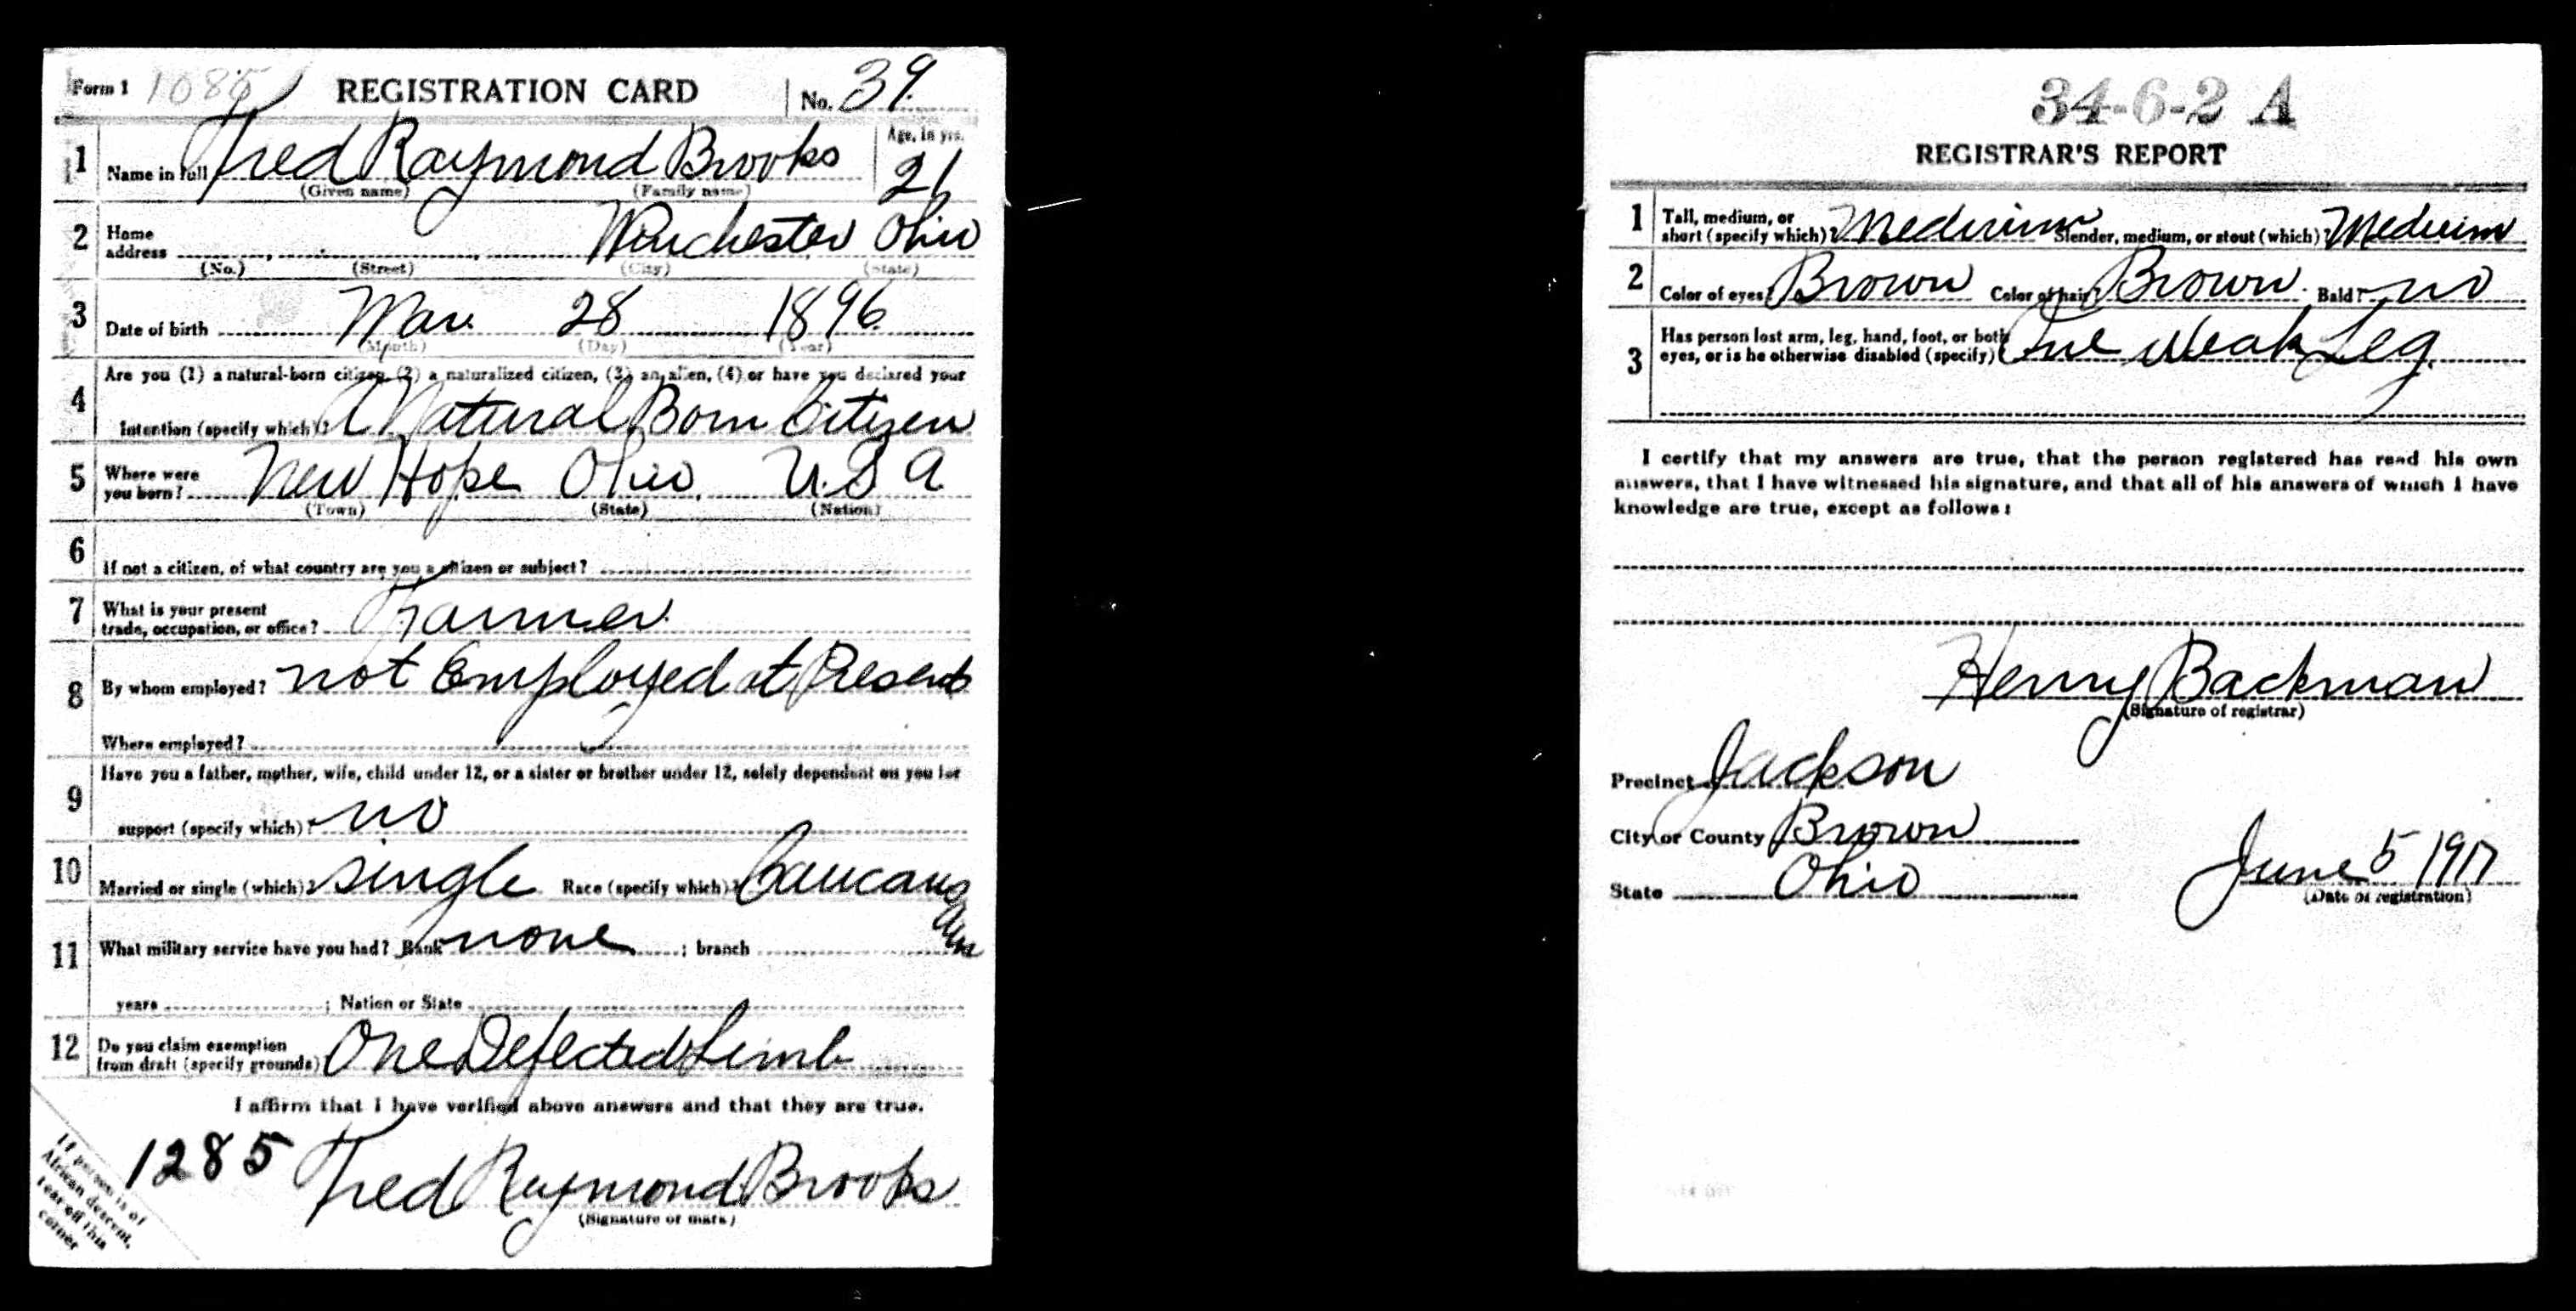 Form 1 1085 REGISTRATION CARD No. 39
1 Name in full Fred Raymond Brooks Age, in yrs. 21
(Given name) (Family name)
2 Home address Winchester Ohio
(No.) (Street) (City) (State)
3 Date of birth Mar. 28 1896
(Month) (Day) (Year)
4 Are you (1) a natural-born citizen, (2) a naturalized citizen, (3) an alien, (4) or have you declared your
intention (specify which)? A Natural Born Citizen
5 Where were you born? New Hope Ohio, U.S A
(Town) (State) (Nation)
6 If not a citizen, of what country are you a citizen or subject?
7 What is your present trade, occupation, or office? Farmer
8 By whom employed? not Employed at Present
Where employed?
9 Have you a father, mother, wife, child under 12, or a sister or brother under 12, solely dependent on you for
support (specify which)? no
10 Married or single (which)? single Race (specify which)? Caucausian
11 What military service have you had? Rank none ; branch
years ; Nation or State
12 Do you claim exemption from draft (specify grounds) One Defected Limb
I affirm that I have verified above answers and that they are true.
1285 Fred Raymond Brooks
(Signature or mark)
If person is of
African descent,
tear off this
corner
34-6-2 A
REGISTRAR'S REPORT
1 Tall, medium, or short (specify which)? Medium Slender, medium, or stout (which)? Medium
2 Color of eyes? Brown Color of hair? Brown Bald? no
3 Has person lost arm, leg, hand, foot, or both eyes, or is he otherwise disabled (specify)? One Weak Leg.
I certify that my answers are true, that the person registered has read his own
answers, that I have witnessed his signature, and that all of his answers of which I have
knowledge are true, except as follows:
Henry Backman
(Signature of registrar)
Precinct Jackson
City or County Brown
State Ohio June 5 1917
(Date of registration)